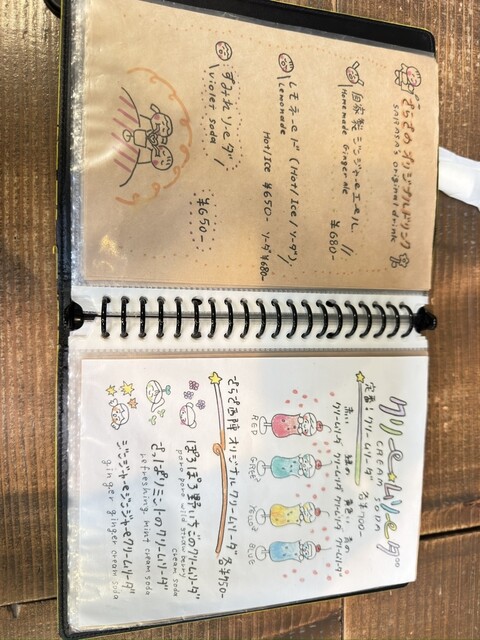 さらさのオリジナルドリンク
SARASA's original drink
自家製ジンジャーエール
Homemade Ginger ale
¥680-
レモネード (Hot/Ice/ソーダ)
Lemonade
Hot/Ice ¥650- ソーダ ¥680-
すみれソーダ
Violet soda
¥650-
クリームソーダ
CREAM SODA
定番!クリームソーダ 各¥700-
赤いクリームソーダ
緑のクリームソーダ
黄色いクリームソーダ
青のクリームソーダ
RED
GREEN
YELLOW
BLUE
さらさ西陣オリジナルクリームソーダ 各¥750-
ぽろぽろ野いちごのクリームソーダ
poro poro wild strawberry
cream soda
さっぱりミントのクリームソーダ
refreshing mint cream soda
ジンジャージンジャークリームソーダ
ginger ginger cream soda